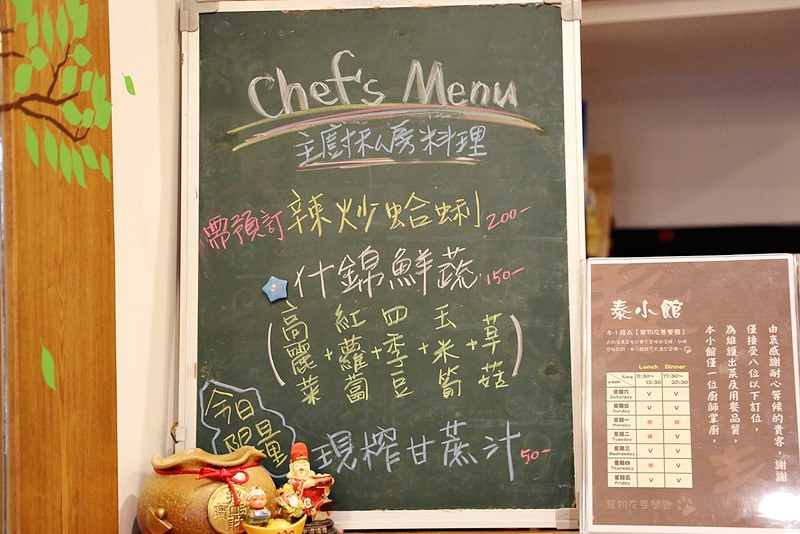 Chef's Menu
主廚私房料理
需預訂 辣炒蛤蜊 200-
什錦鮮蔬 150-
(高麗菜+紅蘿蔔+四季豆+玉米筍+草菇)
今日限量
現榨甘蔗汁 50-
泰小館
由衷感謝耐心等候的貴客,謝謝
僅接受八位以下訂位,
為維護出菜及用餐品質,
本小館僅一位廚師掌廚,
Lunch Dinner
time 11:30~13:30 17:30~20:30
week
星期六 Saturday V V
星期日 Sunday V V
星期一 Monday 休 休
星期二 Tuesday 休 V
星期三 Wednesday V V
星期四 Thursday 休 V
星期五 Friday V V
寵物友善餐廳